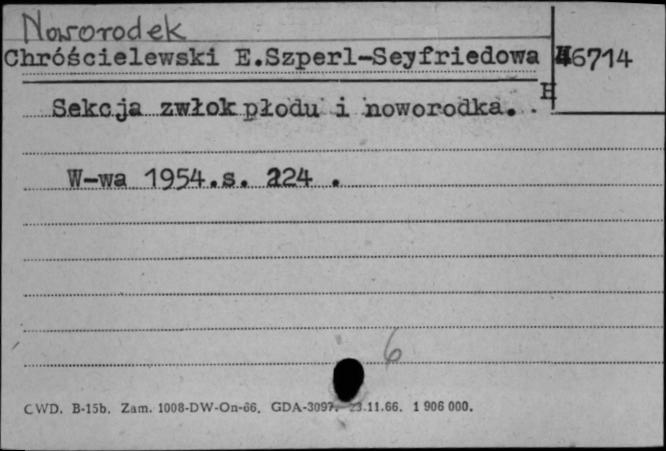 Noworodek
Chróścielewski E.Szperl-Seyfriedowa
46714
H
Sekcja zwłok płodu i noworodka.
W-wa 1954.s. 224 .
6
CWD. B-15b. Zam. 1008-DW-On-66. GDA-3097. 23.11.66. 1 906 000.